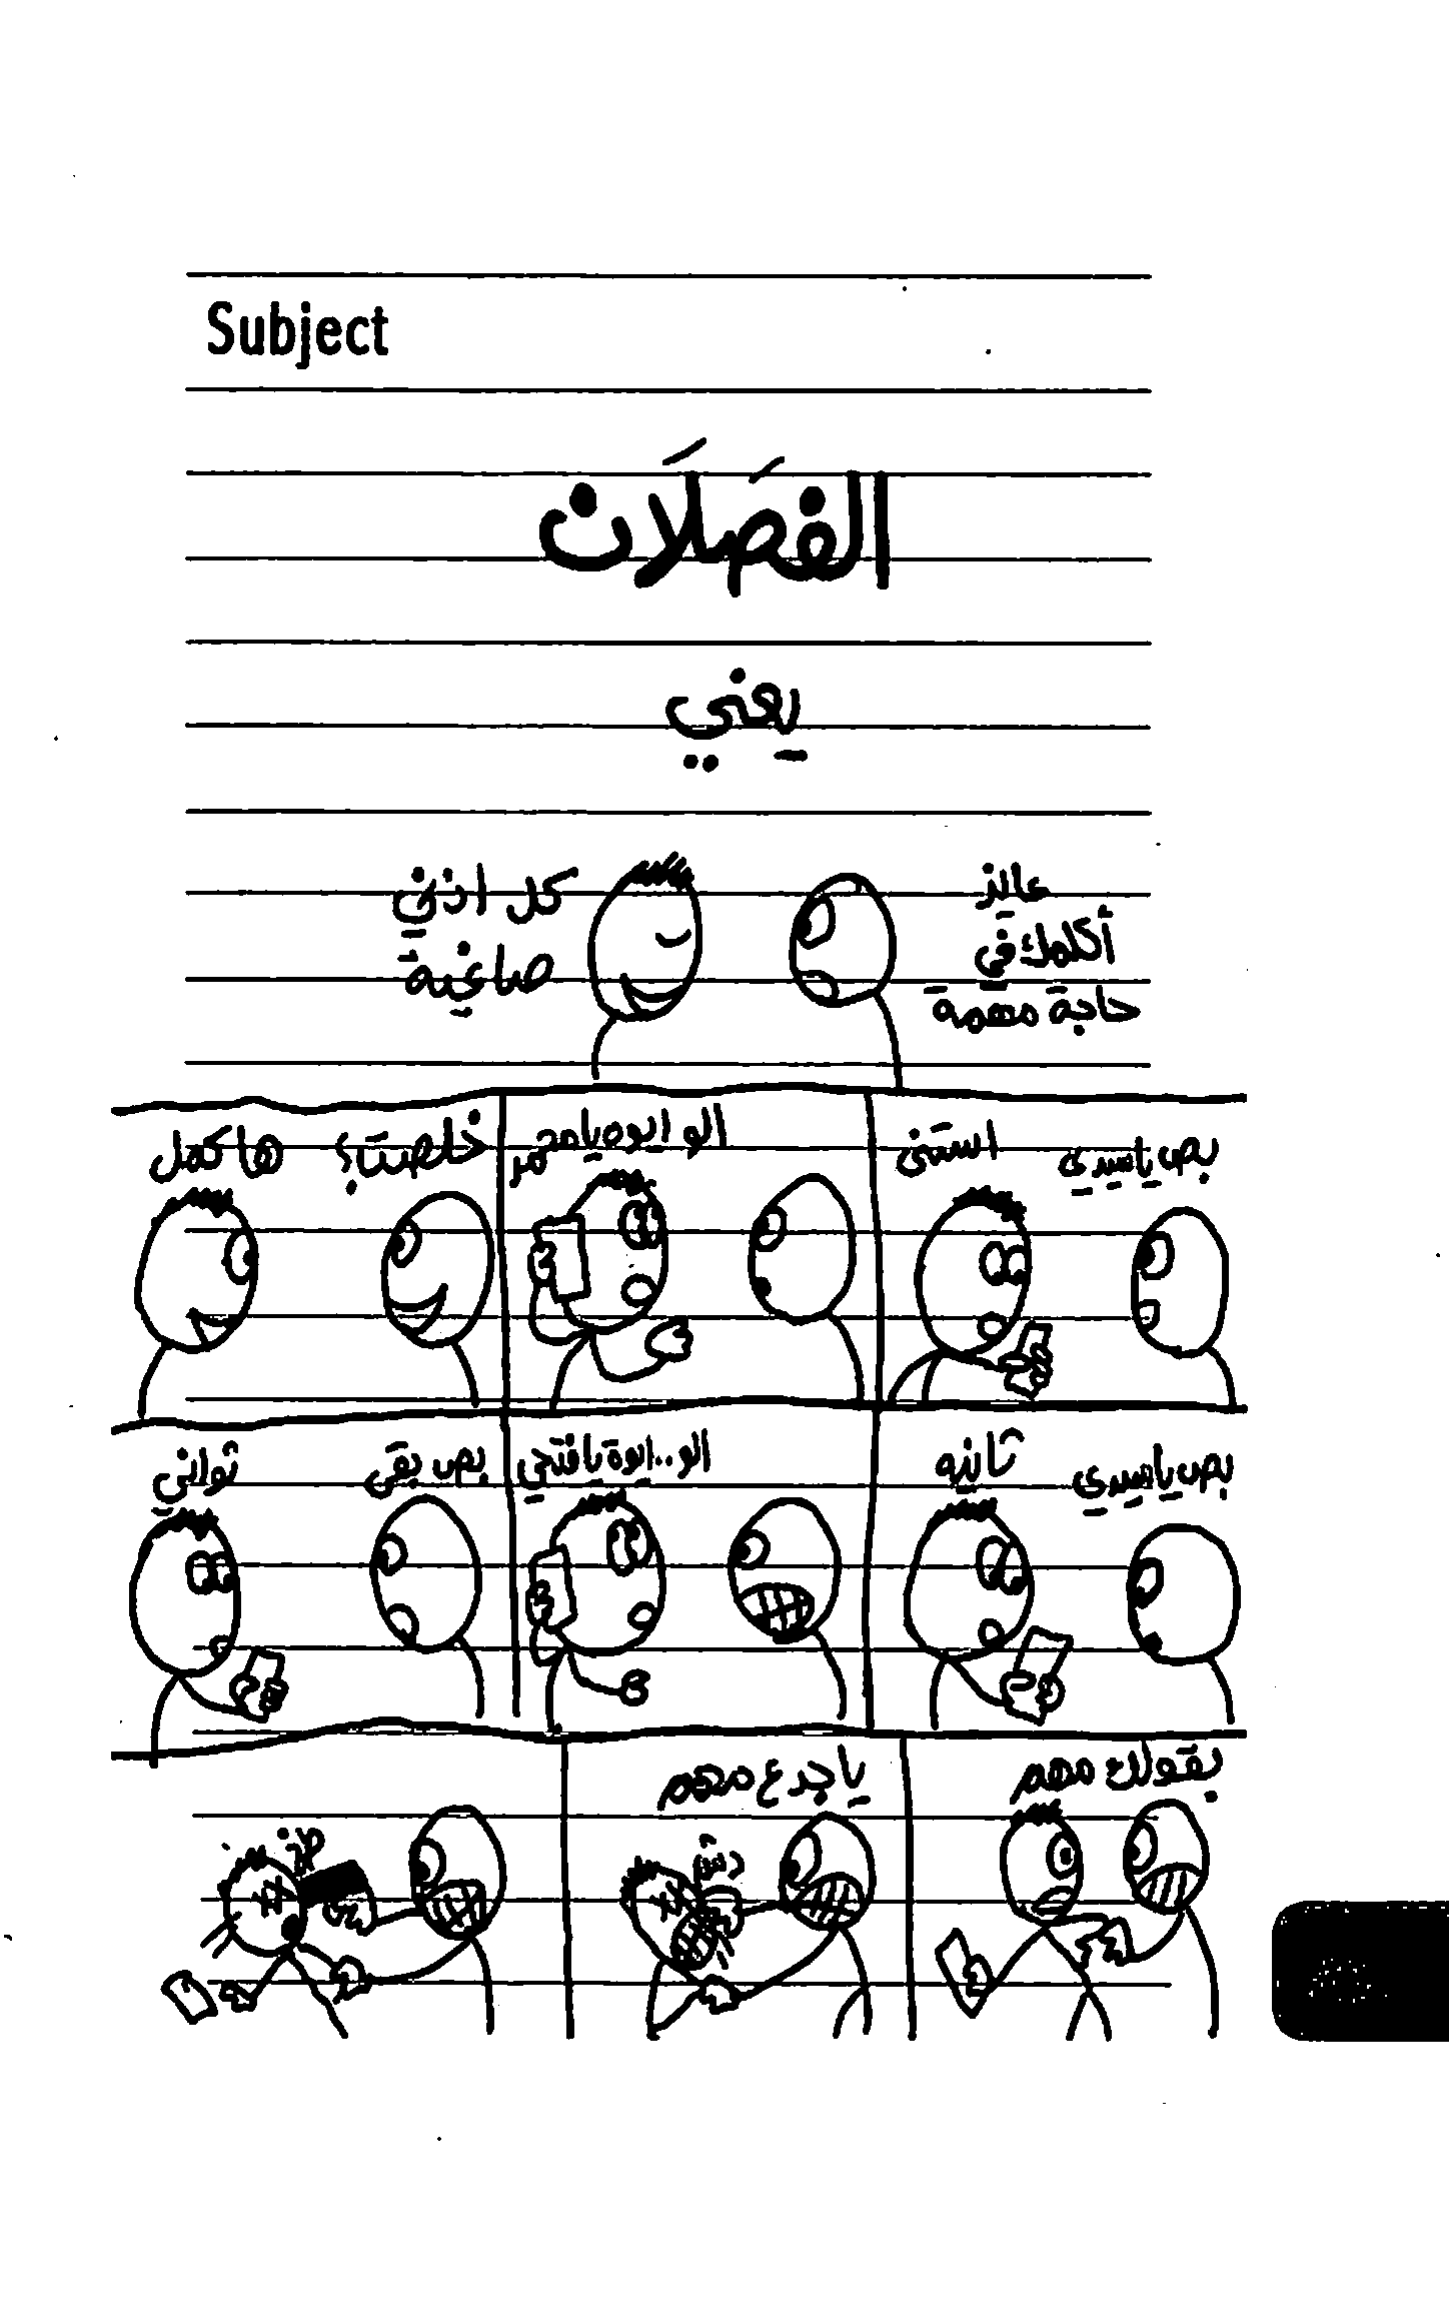 Subject
الفَصَلَان
يعني
عايز
أكلمك في
حاجة مهمة
كل اذني
صاغية
بص ياسيدي
استنى
الو ايوه يا محمد
خلصت؟
هاكمل
بص ياسيدي
ثانيه
الو.. ايوة يا فتحي
بص بقى
ثواني
بقولك مهم
يا جدع مهم
دش